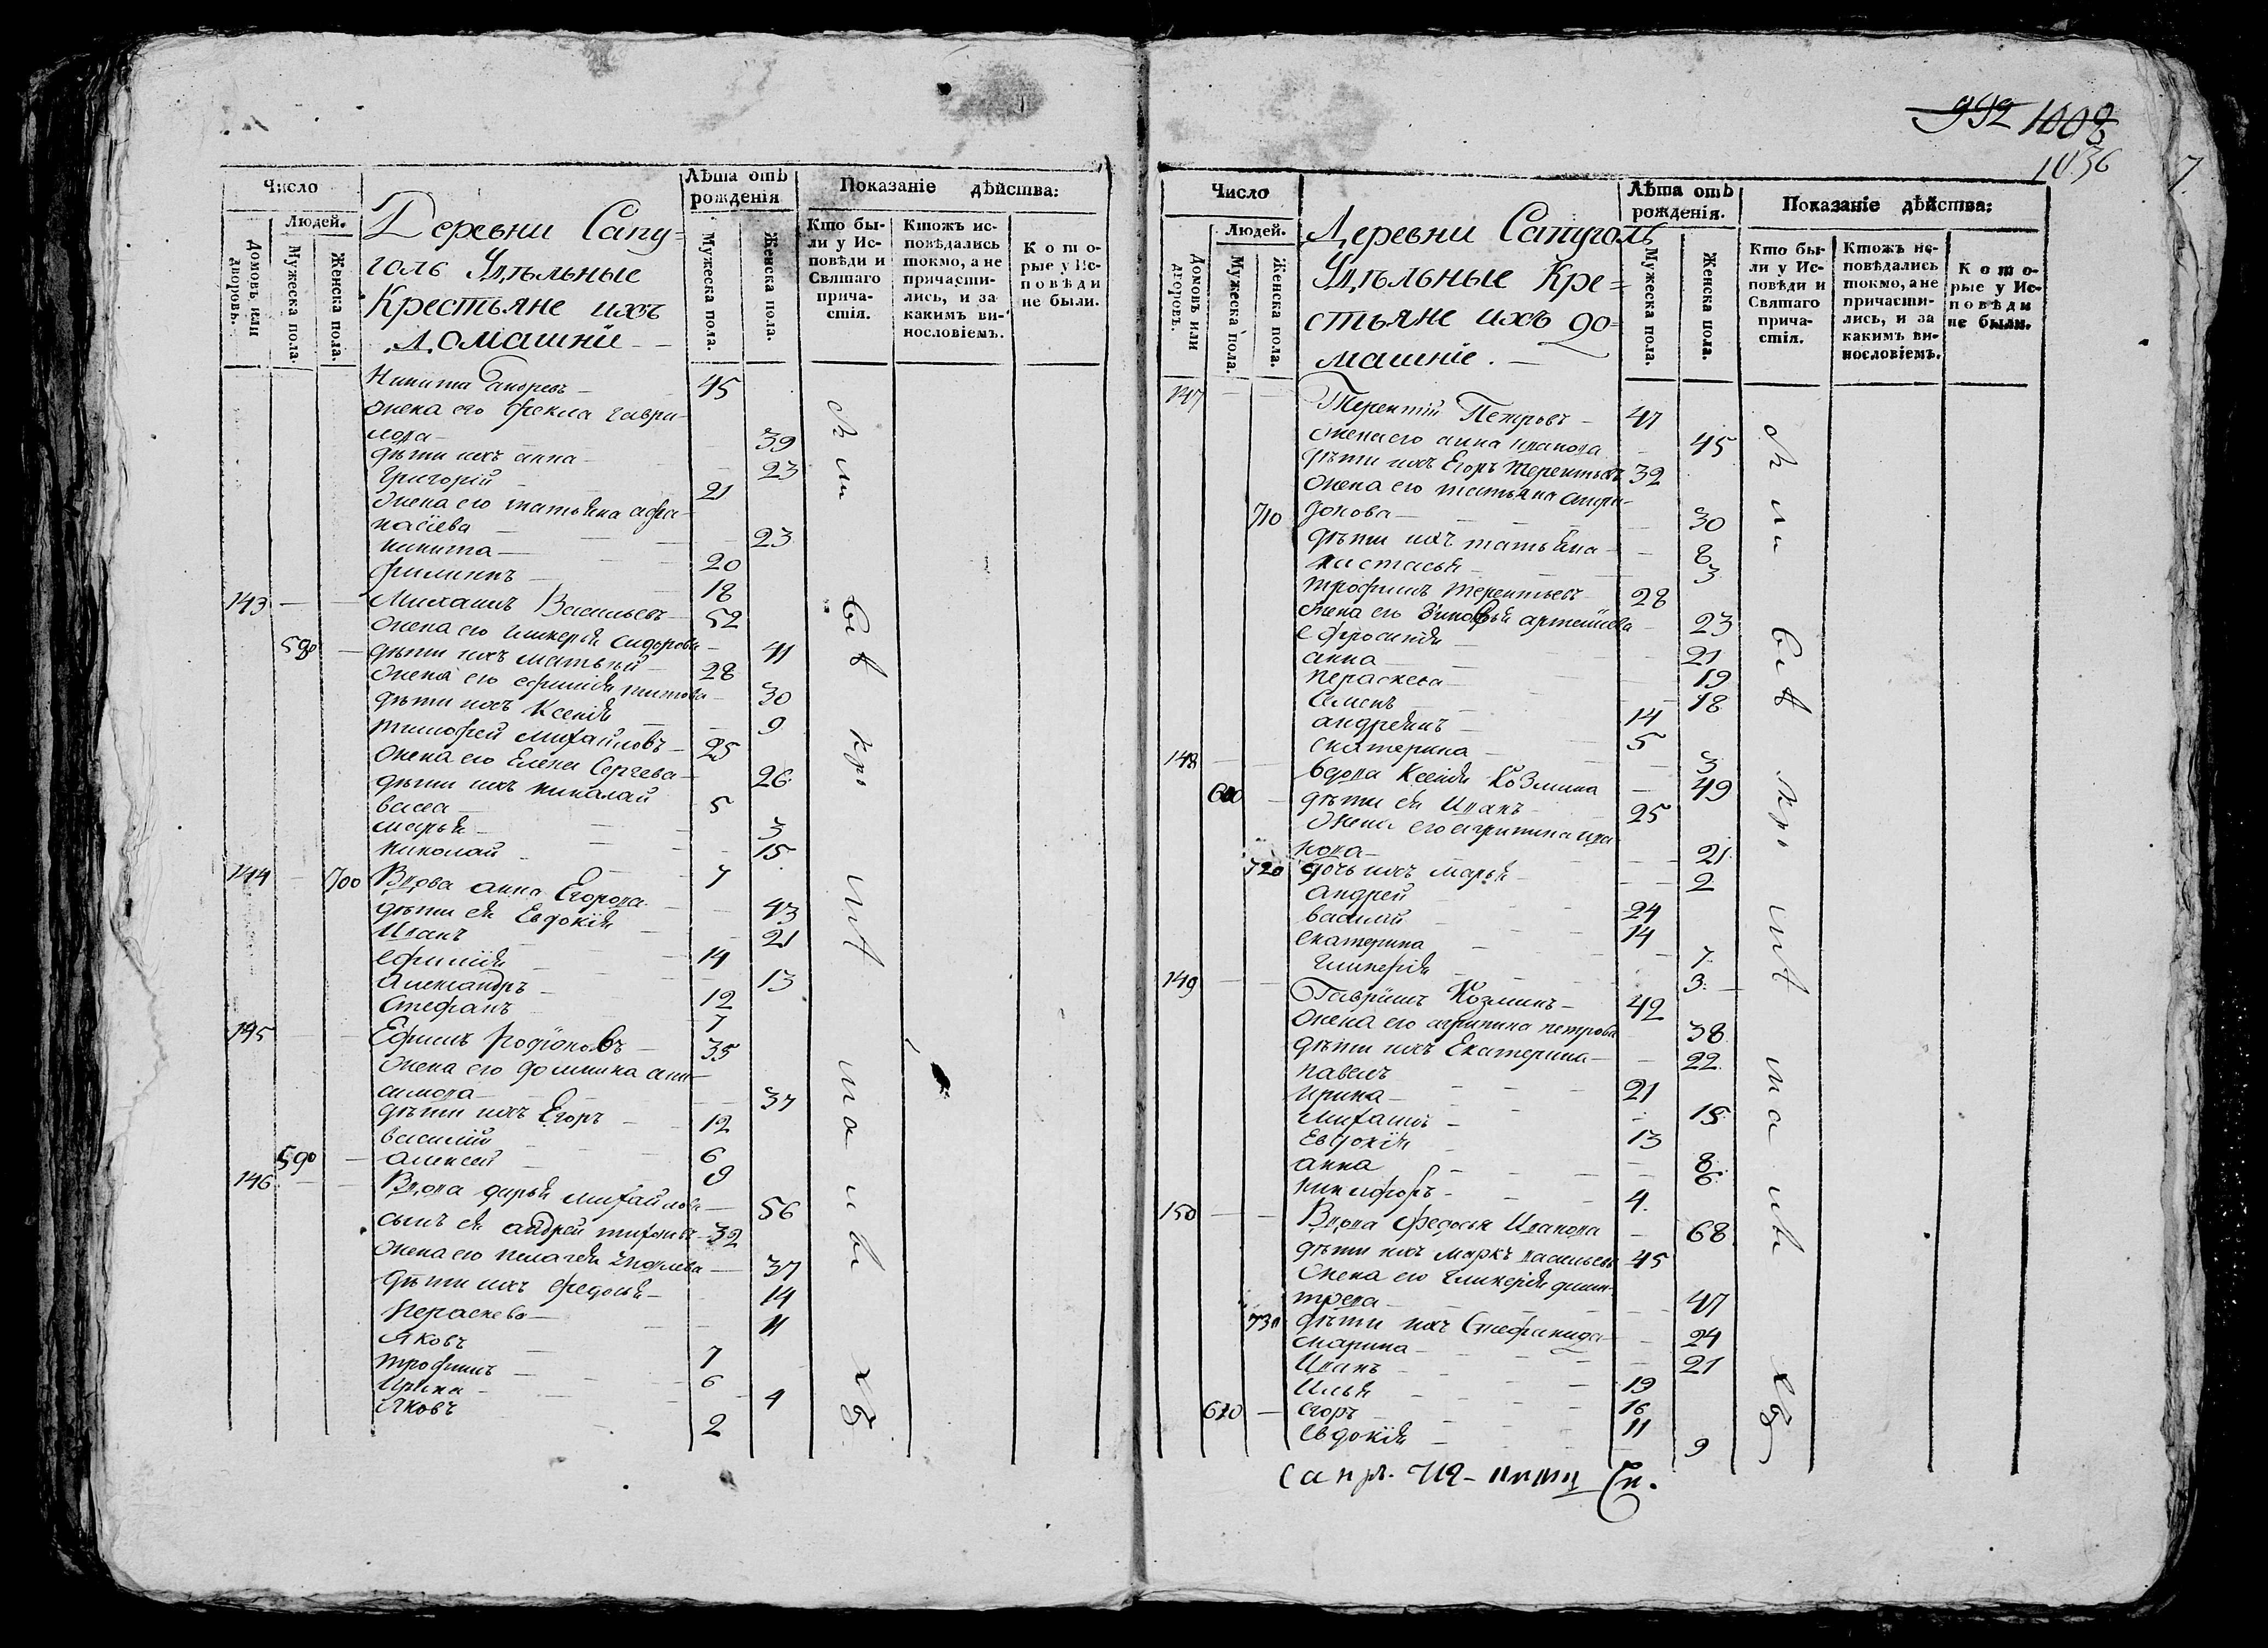 992 1008
1036
7
Число
Людей.
Домовъ или дворовъ.
Мужеска пола.
Женска пола.
Деревни Сапу=
голь Удѣльные
Крестьяне ихъ
домашніе
Лѣта отъ рожденія
Мужеска пола.
Женска пола.
Показаніе дѣйства:
Кто бы-
ли у Ис-
повѣди и
Святаго
прича-
стія.
Ктожъ ис-
повѣдались
токмо, а не
причасти-
лись, и за
какимъ ви-
нословіемъ.
Кото-
рые у Ис-
повѣди
не были.
Никита Андреевъ 45
жена его Фекла Гаври-
лова 39
дѣти ихъ анна 23
Григорій 21
жена его татьяна афа-
насіева 23
никита 20
филиппъ 18
143 Михаилъ Васильевъ 52
жена его гликерія сидорова 41
580 дѣти ихъ матвѣй 28
жена его ефимія титова 30
дѣти ихъ Ксенія 9
тимофей михайловъ 25
жена его Елена Сергеева 26
дѣти ихъ николай 5
васса 3
марья 15
николай 7
144 700 Вдова анна Егорова 43
дѣти ея Евдокія 21
Иванъ 14
ефимія 13
Александръ 12
Стефанъ 7
145 Ефимъ Родіоновъ 35
жена его домника ани-
симова 37
дѣти ихъ Егоръ 12
василій 6
590 алексей 9
146 Вдова дарья михайлова 56
сынъ ея андрей тихоновъ 32
жена его пелагея 37
дѣти ихъ федосья 14
Пераскева 11
Яковъ 7
трофимъ 6
Ирина 4
Яковъ 2
Число
Людей.
Домовъ или дворовъ.
Мужеска пола.
Женска пола.
Деревни Сапуголь
Удѣльные Кре=
стьяне ихъ до=
машніе.
Лѣта отъ рожденія.
Мужеска пола.
Женска пола.
Показаніе дѣйства:
Кто бы-
ли у Ис-
повѣди и
Святаго
прича-
стія.
Ктожъ ис-
повѣдались
токмо, а не
причасти-
лись, и за
какимъ ви-
нословіемъ.
Кото-
рые у Ис-
повѣди
не были.
147 Терентій Петровъ 47
жена его анна иванова 45
дѣти ихъ Егоръ терентьевъ 32
жена его татьяна спири-
710 донова 30
дѣти ихъ татьяна 8
настасья 3
трофимъ терентьевъ 28
жена его Зиновья артеміева 23
ефросинія 21
анна 19
пераскева 18
Семенъ 14
андреянъ 5
екатерина 3
148 вдова Ксенія Козмина 49
600 дѣти ея Иванъ 25
жена его агрипина ива-
нова 21
720 дочь ихъ марья 2
андрей 24
василій 14
екатерина 7
гликерія 3
149 Гавріилъ Козминъ 42
жена его агрипина петрова 38
дѣти ихъ Екатерина 22
павелъ 21
ирина 15
михаилъ 13
Евдокія 8
анна 6
никифоръ 4
150 Вдова федосья Иванова 68
дѣти ихъ маркъ васильевъ 45
жена его гликерія дими-
трева 47
730 дѣти ихъ Стефанида 24
марина 21
Иванъ 19
Илья 16
610 егоръ 11
Евдокія 9